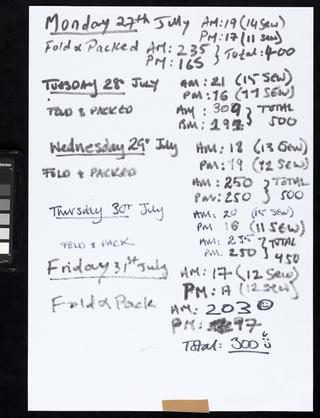 Monday 27th July AM: 19 (14 sew)
PM: 17 (11 sew)
Fold & Packed AM: 235 } Total: 400
PM: 165
TUESDAY 28th July AM: 21 (15 SEW)
PM: 16 (11 SEW)
FOLD & PACKED AM: 309 } TOTAL
PM: 191 500
Wednesday 29th July AM: 18 (13 Sew)
PM: 19 (12 SEW)
FOLD & PACKED
AM: 250 } TOTAL
PM: 250 500
Thursday 30th July AM: 20 (15 SEW)
PM 16 (11 SEW)
FOLD & PACK AM: 235 } TOTAL
PM: 250 450
Friday 31st July AM: 17 (12 Sew)
PM: (12 sew)
Fold & Pack AM: 203
PM: 97
Total: 300